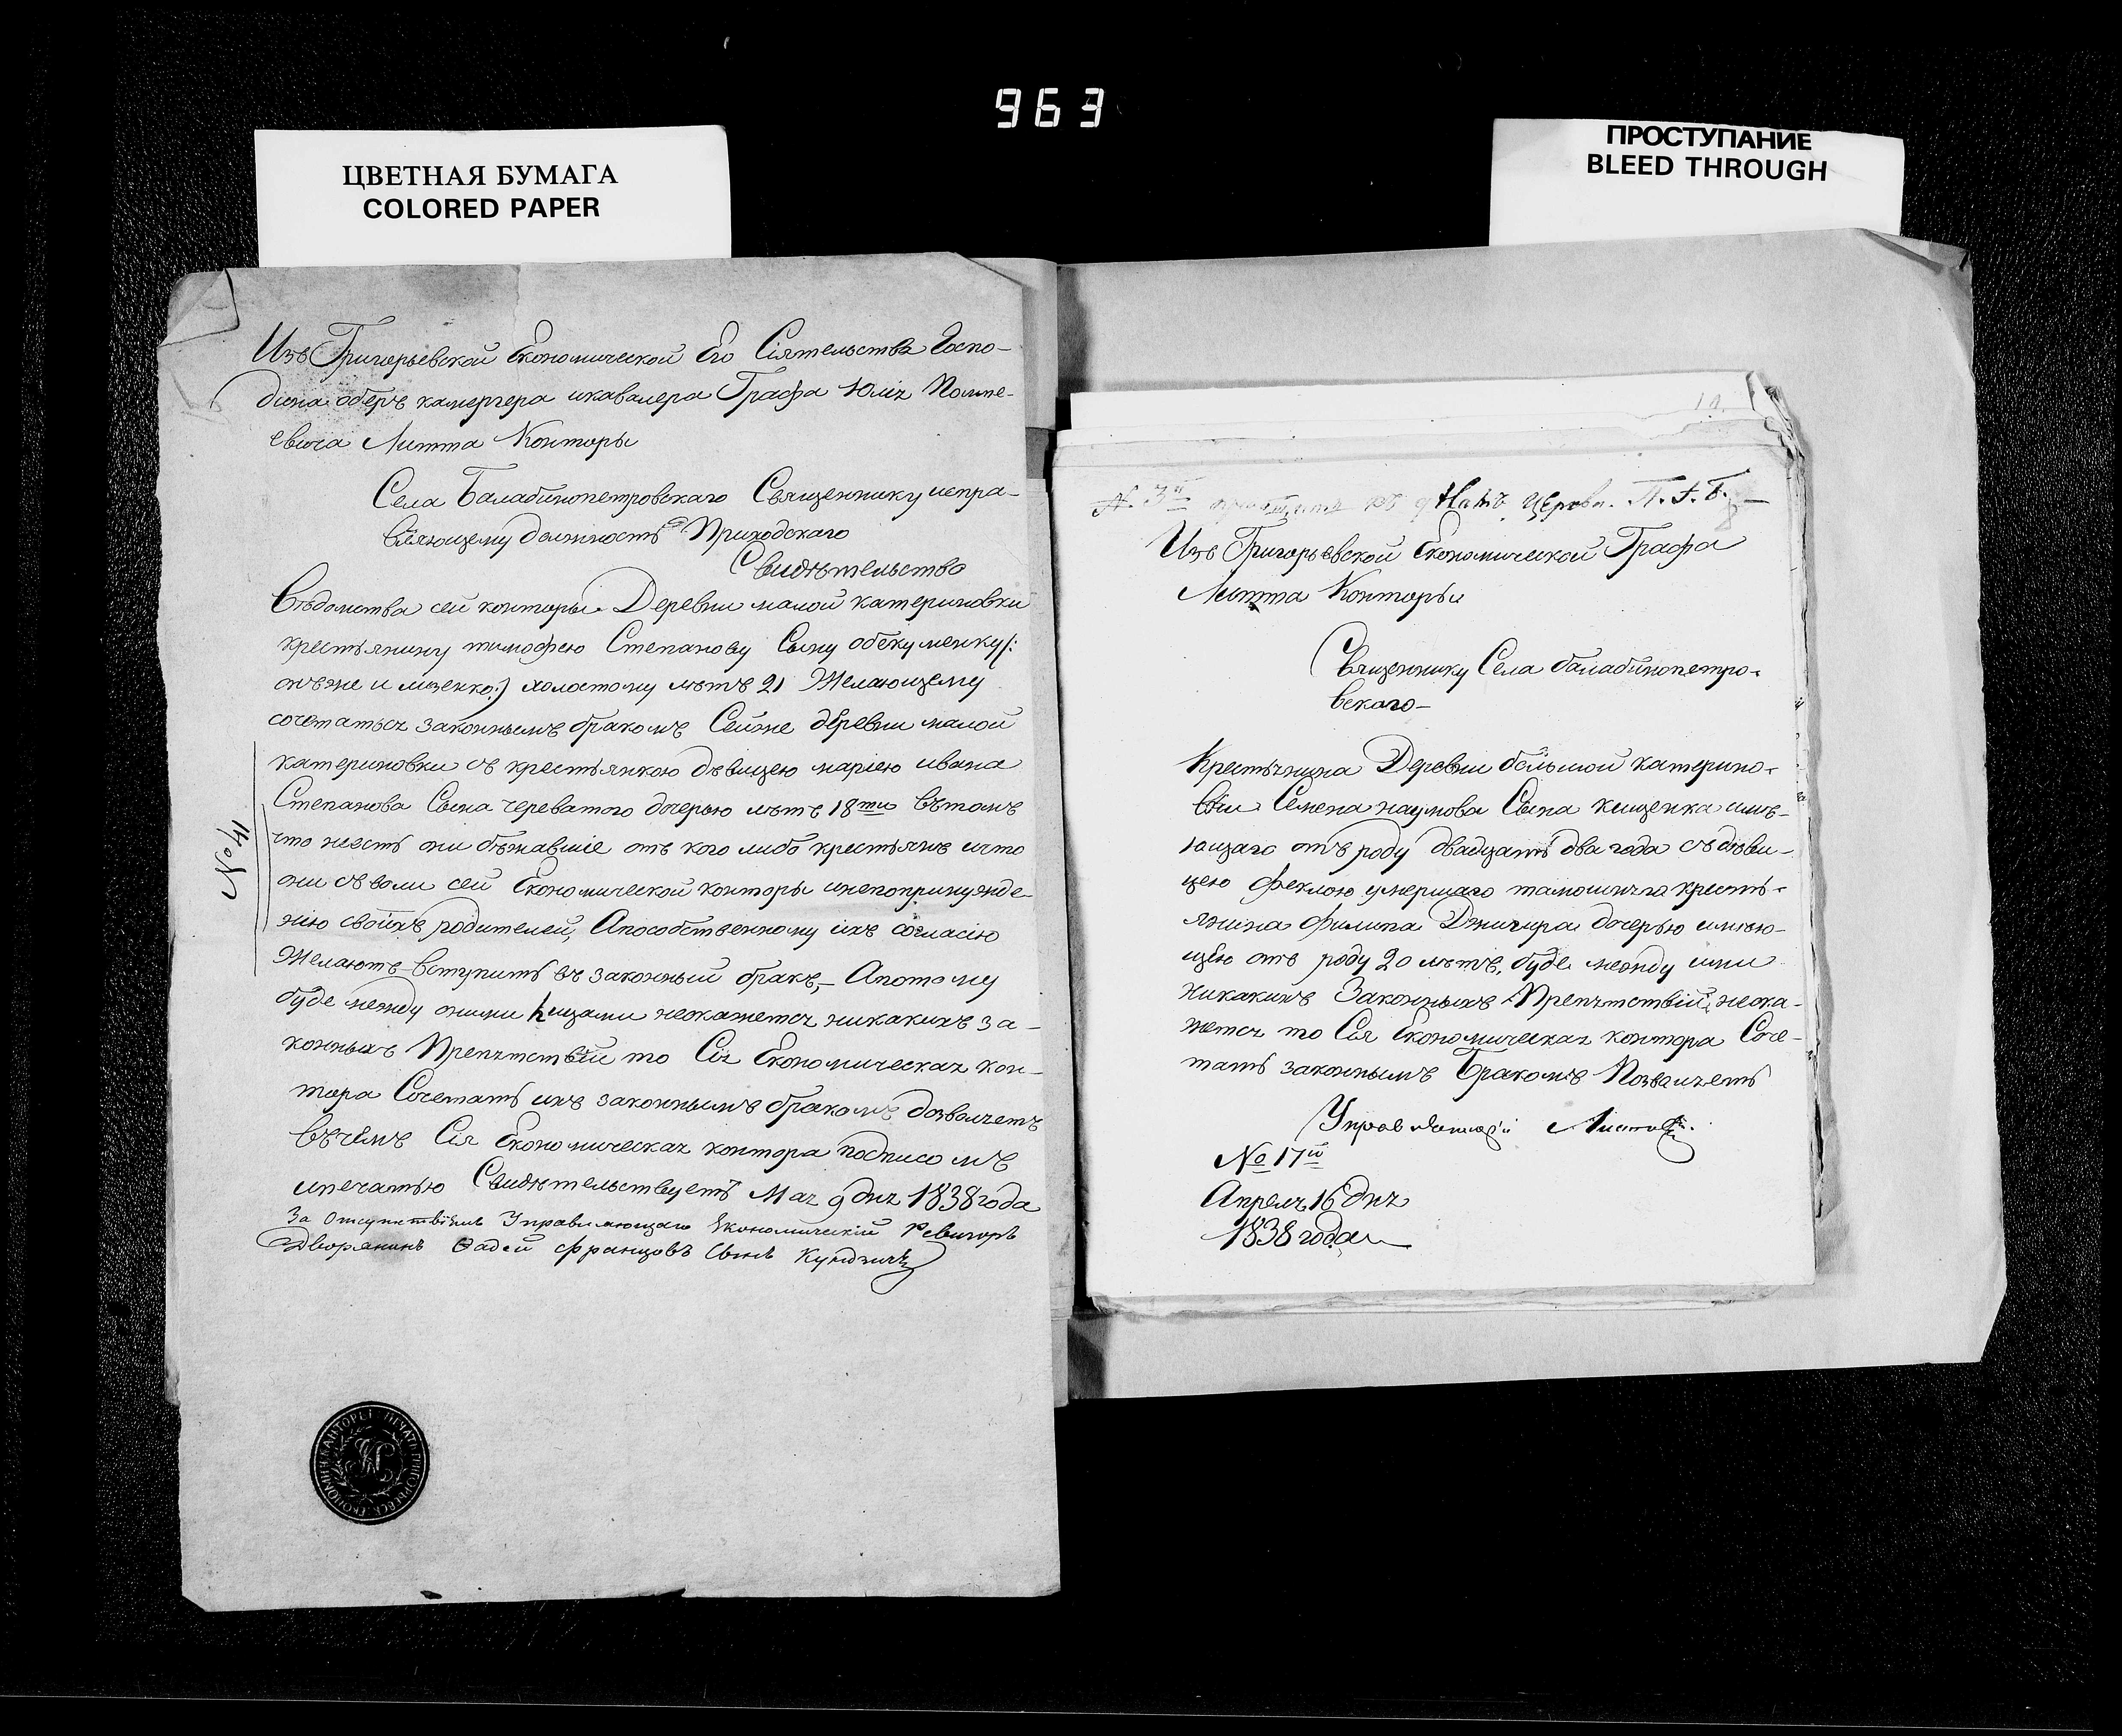 963
ЦВЕТНАЯ БУМАГА
COLORED PAPER
ПРОСТУПАНИЕ
BLEED THROUGH
Изъ Григорьевской Економической Его Сіятельства Госпо-
дина оберъ камергера икавалера Графа Юлія Помпе-
евича Литта Конторы
Села Балабинопетровскаго Священнику испра-
вляющему должность Приходскаго
Свидѣтельство
Вѣдомства сей конторы Деревни малой катериновки
крестьянину тимофею Степанову Сыну обекуменку /:
онъже и мизенко:) холостому лѣтъ 21 Желающему
сочетаться законнымъ бракомъ Сейже деревни малой
катериновки съ крестьянкою дѣвицею маріею ивана
Степанова Сына череватого дочерью лѣтъ 18ти вътомъ
что несть они бѣжавшіе отъ кого либо крестьянъ ичто
они съволи сей Економической конторы инепопринужде
нію своихъ родителей, Апособственному ихъ согласію
Желаютъ вступить въ законный бракъ,- Апотому
буде между оними лицами неокажется никакихъ за-
конныхъ Препятствій то Сія Економическая кон-
тора Сочетать ихъ законнымъ бракомъ дозволяетъ
вчемъ Сія Економическая контора подписомъ
ипечатью Свидѣтельствуетъ Мая 9 дня 1838 года
За Отсутствіемъ Управляющаго Економическій Ревизоръ
Дворянинъ Фадей Францовъ Сынъ
No 41
N. 3й
Церкви. П. Г. Б.
Изъ Григорьевской Економической Графа
Литта Конторы
Священнику Села балабинопетро-
вскаго-
Крестьянина Деревни большой катерино-
вки Семена наумова Сына кищенка имѣ-
ющаго отъ роду двадцать два года съдѣви-
цею феклою умершаго тамошняго кресть-
янина филипа Джигира дочерью имѣю-
щею отъ роду 20 лѣтъ, буде между ими
никакихъ Законныхъ Препятствій, неока-
жется то Сія Економическая контора Соче-
тать законнымъ Бракомъ Позволяетъ
Управляющій
No 17й
Апреля 16 дня
1838 года